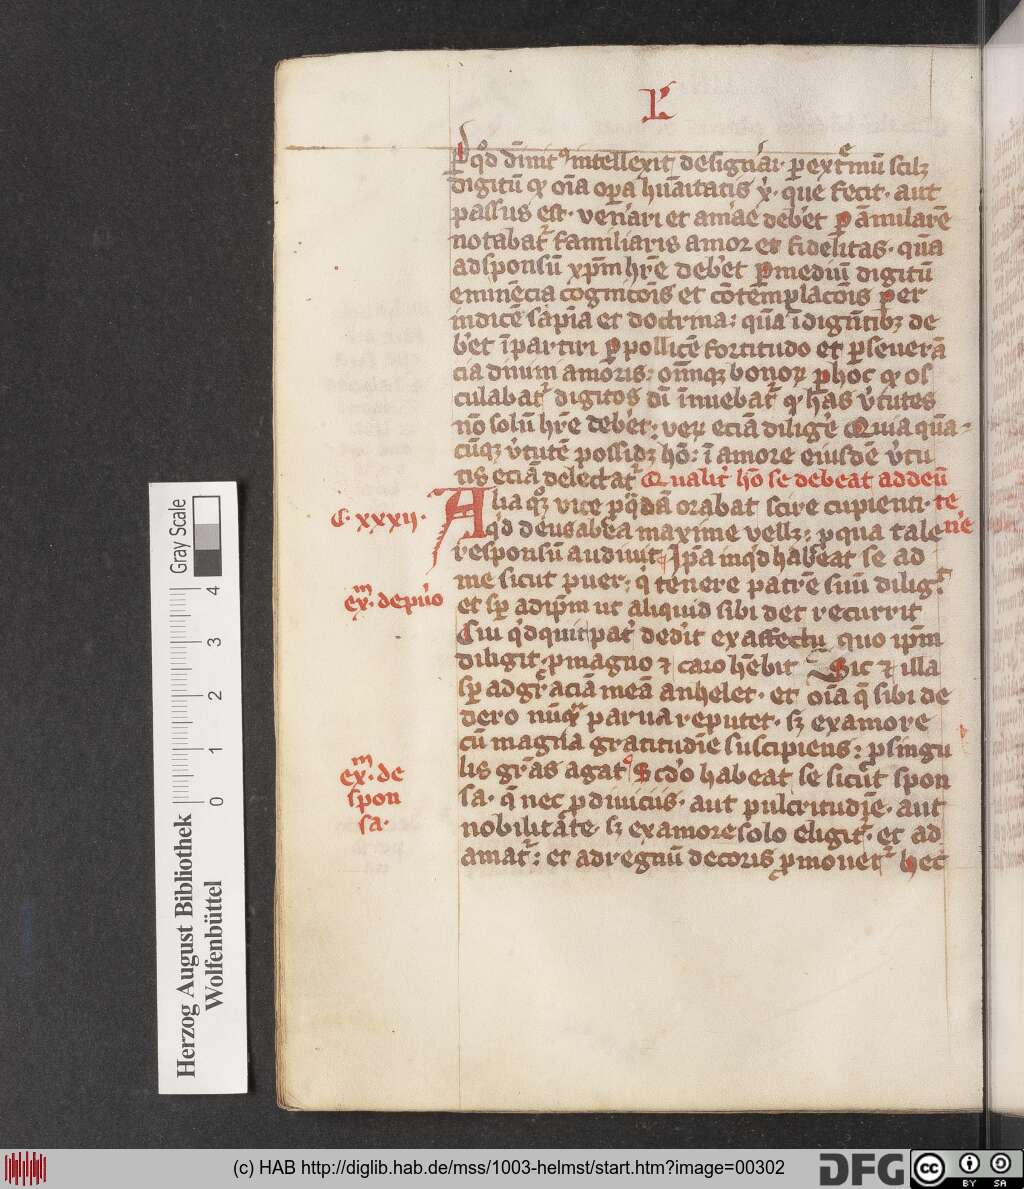 L
p qd dimit intellexit designari. p extmu scilz
digitu q oia opa huaitatis x. que fecit. aut
passus est. venari et amae debet p amulare
notabat familiaris amor et fidelitas. qua
ad sponsu xpm hre debet p mediu digitu
eminecia cognicois et cotemplacois per
indice sapia et doctrina: qua i digitibz de
bet ipartiri p pollice fortitudo et pseuera
cia amoris: bonor p hoc q os
culabat digitos di inuebat q has vtutes
no solu hre debet: ver ecia diligere Quia qua-
cuqz vtute possidz ho: i amore eiusde vtu
tis ecia delectat Qualit ho se debeat ad deu
C. xxxii. Alia qz vice p qda orabat scire cupienti. te
qd deus ab ea maxime vellz: p qua tale ne
responsu audiuit Ipa inqd habeat se ad
me sicut puer: q tenere patre suu dilig
exm. de puo
et sp ad ipm ut aliquid sibi det recurrit
Cui qdquit pat dedit ex affectu quo ipm
diligit. p magno et caro hebit Sic et illa
sp ad graciam mea anhelet. et oia q sibi de
dero nuq parua reputet. sz ex amore
cu magna gratitudie suscipiens: p singu
exm. de
spon
sa.
lis gras agat Scdo habeat se sicut spon
sa. q nec p diuiciis. aut pulcritudie. aut
nobilitate. sz ex amore solo eligit. et ad
amat: et ad regnu decoris pmouet hec
Gray Scale
4
3
2
1
0
Herzog August Bibliothek
Wolfenbüttel
(c) HAB http://diglib.hab.de/mss/1003-helmst/start.htm?image=00302
DFG
cc
BY SA